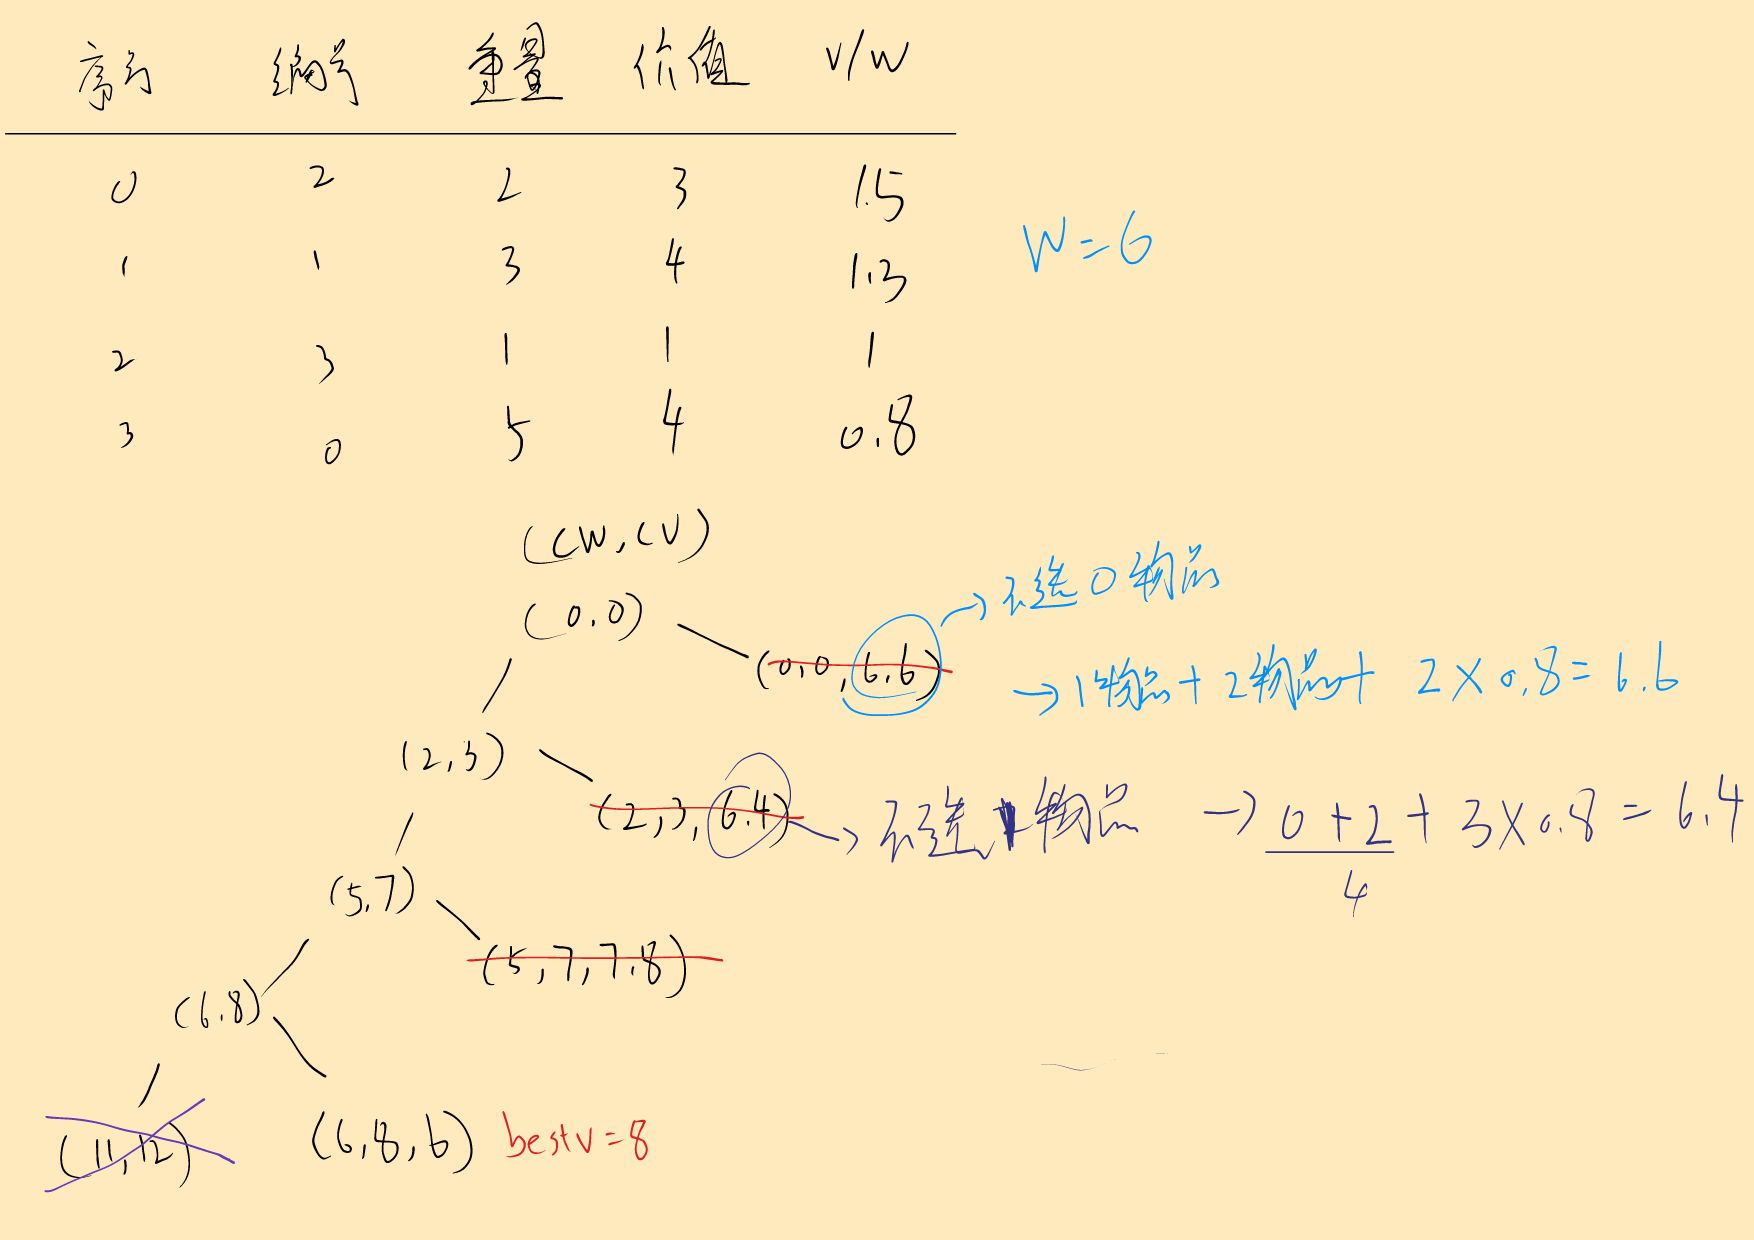 序号 编号 重量 价值 V/W
0 2 2 3 1.5
1 1 3 4 1.3
2 3 1 1 1
3 0 5 4 0.8
W=6
(CW,CV)
(0,0)
(0,0,6.6)
→不选0物品
→1物品+2物品+ 2×0.8=6.6
(2,3)
(2,3,6.4)
→不选1物品 → 0+2+3×0.8=6.4
4
(5,7)
(5,7,7.8)
(6.8)
(11,12)
(6,8,6) bestv=8